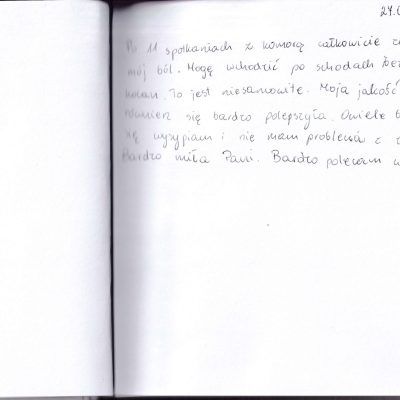 24.0
Po 11 spotkaniach z komorą całkowicie z
mój ból. Mogę wchodzić po schodach bez
kolan. To jest niesamowite. Moja jakość
również się bardzo polepszyła. O wiele
się wysypiam i nie mam problemów z
Bardzo miła Pani. Bardzo polecam w